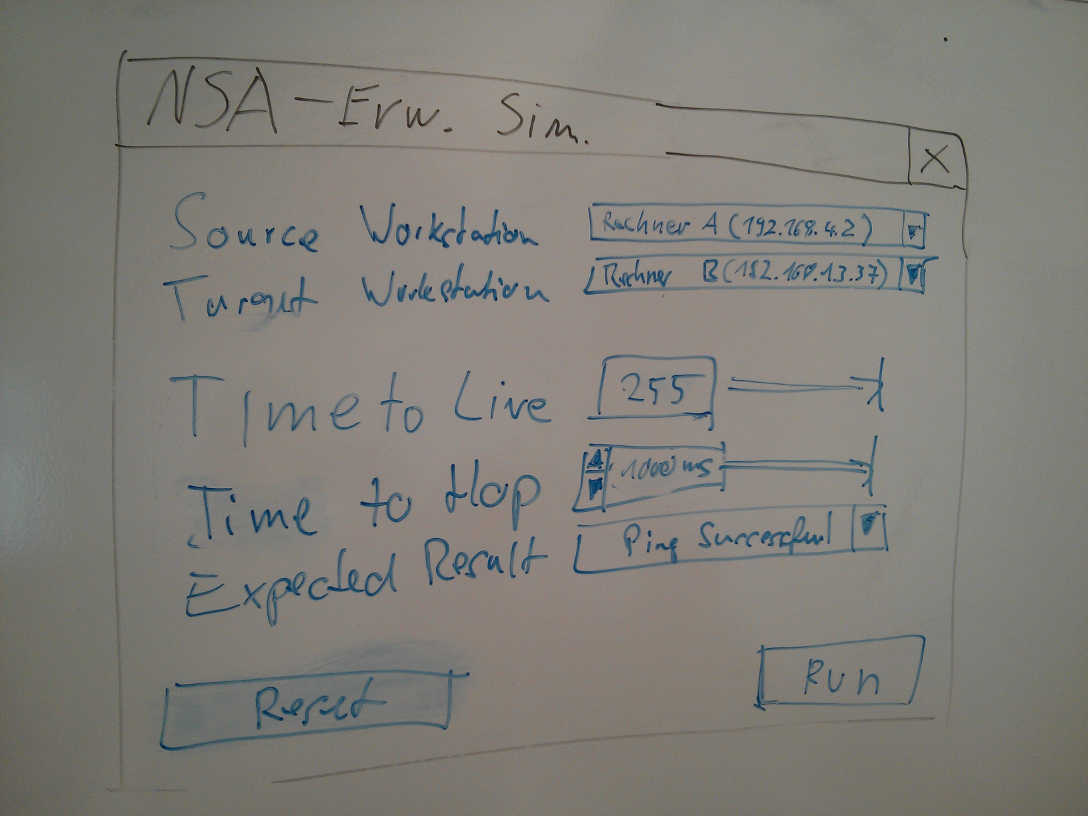 NSA-Erw. Sim. X
Source Workstation Rechner A (192.168.4.2)
Target Workstation Rechner B (192.168.13.37)
Time to Live 255
Time to Hop 1000 ms
Expected Result Ping Successful
Reset Run